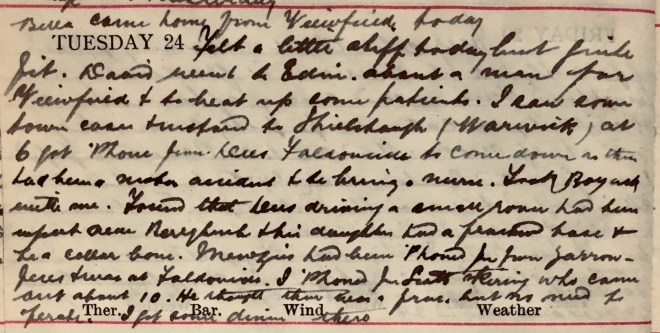 Bella came home from Viewfield today
TUESDAY 24 Felt a little stiff today but quite
fit. David went to Edin. about a man for
Viewfield & to beat up some patients. I saw some
town cases & to Shielshaugh (Warwick) at
6 got 'Phone from to come down as there
had been a motor accident & to bring a nurse. Took
with me. Found that driving a small had been
upset near & his daughter had a fractured base &
he a collar bone. Menzies had been 'Phoned for from Yarrow-
& was at . I 'Phoned for who came
out about 10. He thought there was a frac. but no need to
Ther. Bar. Wind Weather
operate. I got some dinner there